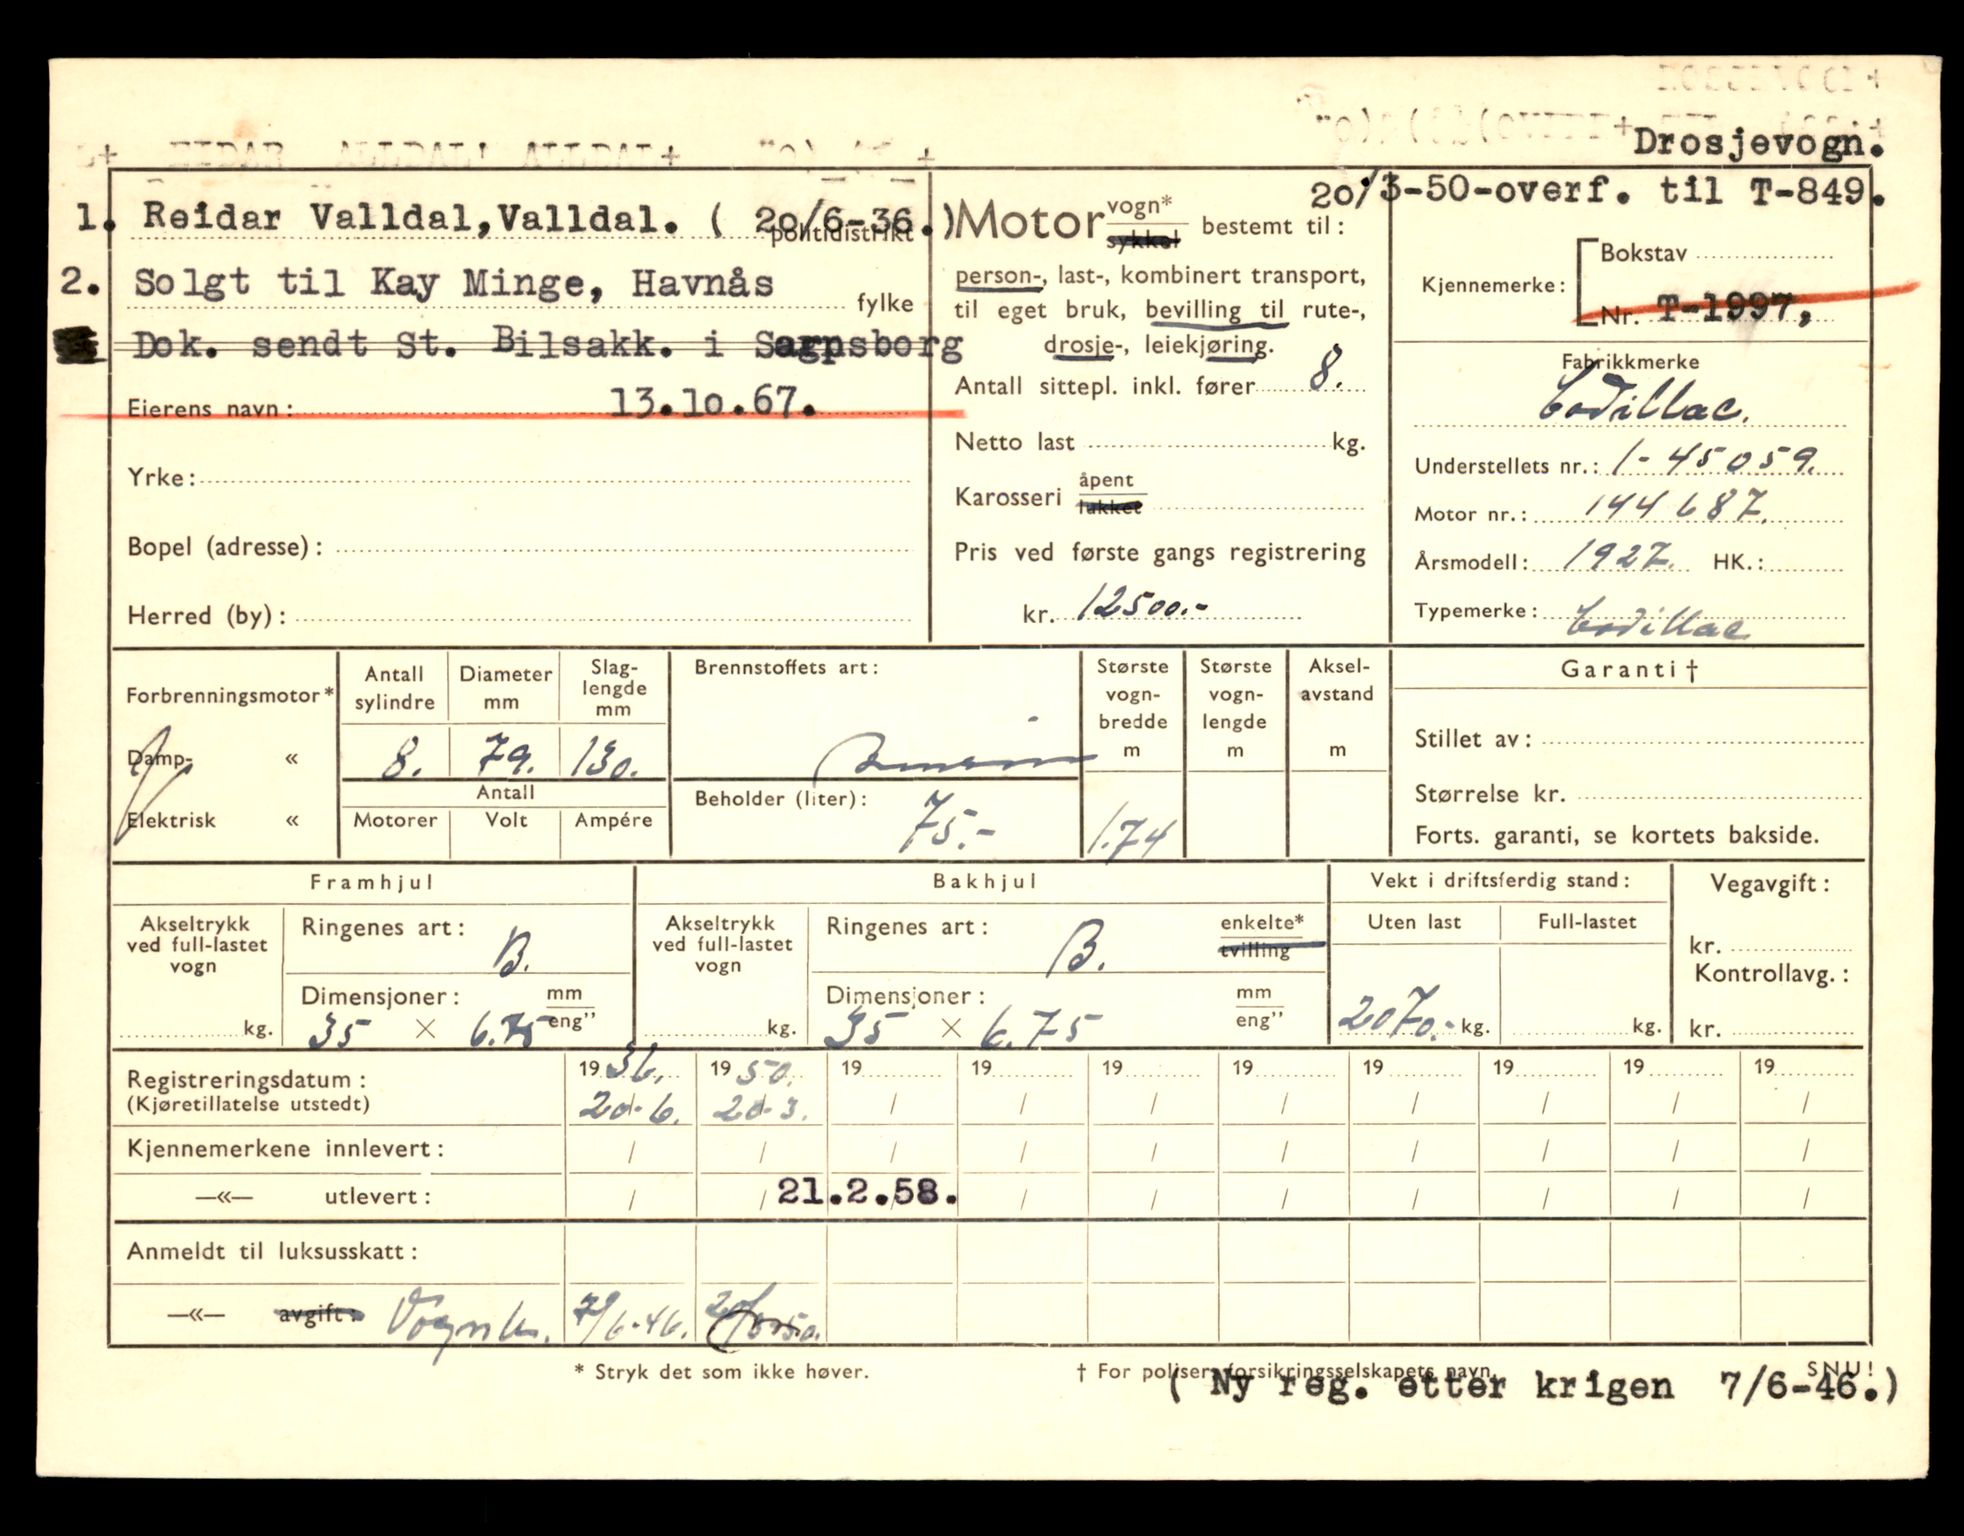 Drosjevogn.
20/3-50-overf. til T-849.
1. Reidar Valldal, Valldal. ( 20/6-36.)
politidistrikt
2. Solgt til Kay Minge, Havnås
fylke
Dok. sendt St. Bilsakk. i Sarpsborg
Eierens navn: 13.10.67.
Yrke:
Bopel (adresse):
Herred (by):
Motor vogn* sykkel bestemt til:
person-, last-, kombinert transport,
til eget bruk, bevilling til rute-,
drosje-, leiekjøring.
Antall sittepl. inkl. fører 8.
Netto last kg.
Karosseri åpent lukket
Pris ved første gangs registrering
kr. 12500.-
Kjennemerke: Bokstav
Nr. T-1997,
Fabrikkmerke
Cadillac.
Understellets nr.: 1-45059.
Motor nr.: 144687.
Årsmodell: 1927. HK.:
Typemerke: Cadillac
Forbrenningsmotor*
Damp- «
Elektrisk «
Antall sylindre
8.
Diameter mm
79.
Slag-lengde mm
130.
Antall
Motorer Volt Ampére
Brennstoffets art:
Bensin
Beholder (liter): 75.-
Største vogn-bredde m
1.74
Største vogn-lengde m
Aksel-avstand m
Garanti †
Stillet av:
Størrelse kr.
Forts. garanti, se kortets bakside.
Framhjul
Akseltrykk ved full-lastet vogn
kg.
Ringenes art: B.
Dimensjoner: mm eng"
35 × 6.75
Bakhjul
Akseltrykk ved full-lastet vogn
kg.
Ringenes art: B. enkelte* tvilling
Dimensjoner: mm eng"
35 × 6.75
Vekt i driftsferdig stand:
Uten last Full-lastet
2070.- kg. kg.
Vegavgift:
kr.
Kontrollavg.:
kr.
Registreringsdatum: 1936. 1950. 19 19 19 19 19 19 19 19
(Kjøretillatelse utstedt) 20/-6. 20/-3. / / / / / / / /
Kjennemerkene innlevert: / / / / / / / / / /
—«— utlevert: / / 21.2.58. / / / / / / /
Anmeldt til luksusskatt:
—«— avgift: Vognk. 7/6-46.
* Stryk det som ikke høver. † For poliser: forsikringsselskapets navn. SNU!
( Ny reg. etter krigen 7/6-46.)